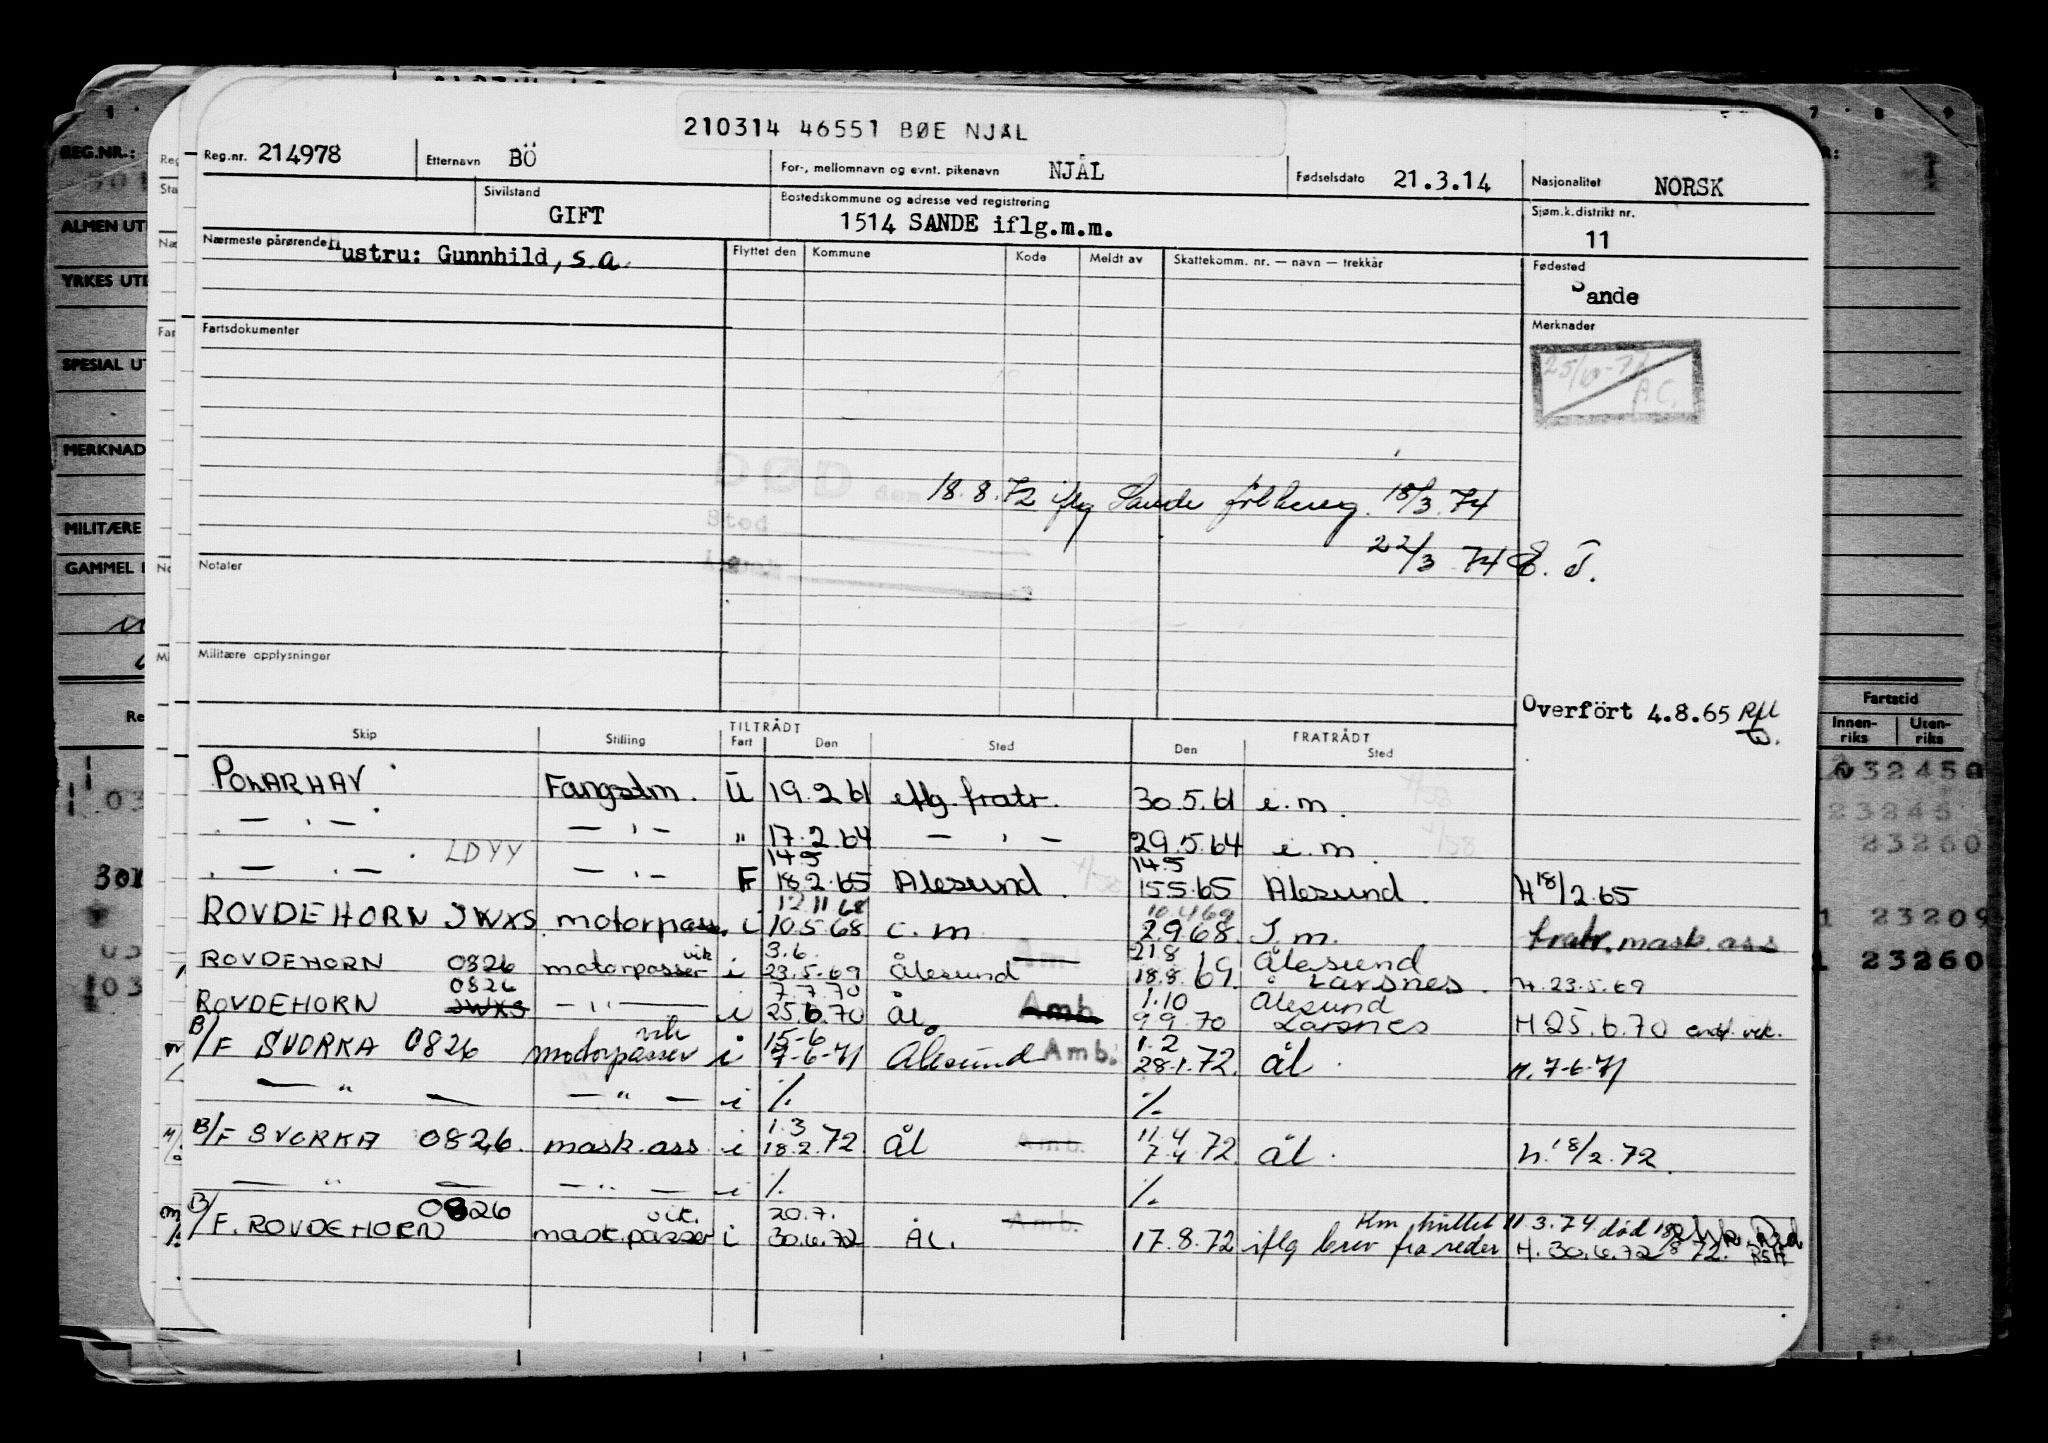 210314 46551 BØE NJÅL
Reg.nr. 214978 Etternavn BÖ For-, mellomnavn og evnt. pikenavn NJÅL Fødselsdato 21.3.14 Nasjonalitet NORSK
Sivilstand GIFT Bostedskommune og adresse ved registrering 1514 SANDE iflg.m.m. Sjøm.k.distrikt nr. 11
Nærmeste pårørende Hustru: Gunnhild, s.a. Flyttet den Kommune Kode Meldt av Skattekomm. nr. — navn — trekkår Fødested Sande
Fartsdokumenter Merknader
25/10-77
A C.
DØD den 18.8.72 iflg Sande folkereg. 18/3.74
Sted
22/3 74 E. T.
Notater
Militære opplysninger
Overfört 4.8.65
TILTRÅDT FRATRÅDT
Skip Stilling Fart Den Sted Den Sted
POLARHAV Fangstm. U 19.2.61 iflg. fratr. 30.5.61 i.m.
— " — — " — " 17.2.64 — " — 29.5.64 i.m.
LDYY 14.5 14.5
— " — — " — F 18.2.65 Ålesund 15.5.65 Ålesund. H 18/2.65
12.11.68 10.4.69
ROVDEHORN JWXS motorpass. i 10.5.68 i.m. 2.9.68. I.m. fratr. mask.ass
vik 3.6. 21.8 Ålesund
ROVDEHORN 0826 motorpasser i 23.5.69 Ålesund 18.8.69. Larsnes. H. 23.5.69
0826 7.7.70 1.10 Ålesund
ROVDEHORN JWXS — " — i 25.6.70 ÅL Amb. 9.9.70 Larsnes H 25.6.70 end. vik.
vik 15-6 1.2
B/F SVORKA 0826 motorpasser i 7-6-71 Ålesund Amb. 28.1.72. ål. H. 7-6-71
— " — — " — i ⁒ ⁒
1.3 11.4
B/F SVORKA 0826. mask.ass i 18.2.72 ål Amb. 7.4.72. ål. H. 18/2.72.
— " — — " — i ⁒ ⁒
0826 vik. 20.7. Amb. Km hullet 11.3.74 død 18/8 72.
B/F. ROVDEHORN mask.passer i 30.6.72 ÅL. 17.8.72 iflg brev fra reder H. 30.6.72
REG.NR.:
ALMEN UT
YRKES UTD
SPESIAL UT
MERKNAD
MILITÆRE
GAMMEL
Fartstid
Innenriks Utenriks
32450
23245
23260
1 23209
1 23260